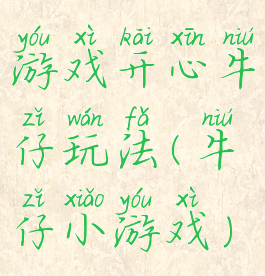 yóu xì kāi xīn niú
游戏开心牛
zǐ wán fǎ niú
仔玩法(牛
zǐ xiǎo yóu xì
仔小游戏)